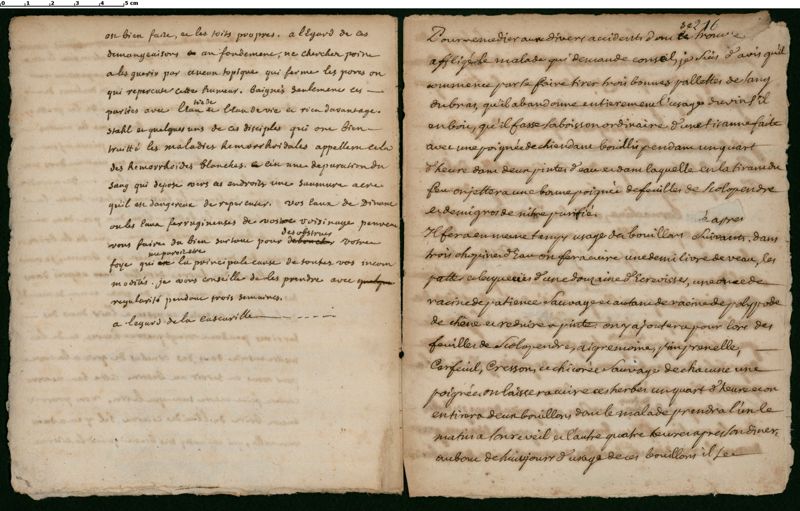 0 1 2 3 4 5 cm
ou bien faire, et les toits propres. a légard de ces
demangeaisons au fondement, ne chercher point
a les guerir par aucun topique qui ferme les pores ou
qui repercute cette humeur. baignés seulement ces
parties avec l'eau tiede et l'eau de vie et rien davantage.
stahl et quelques uns de ces disciples qui ont bien
traitté les maladies hemorrhoidales appellent cela
des hemorrhoides blanches. c'est une depuration du
sang qui depose vers ces endroits une saumure acre
qu'il est dangereux de repercuter. vos eaux de Dinant
ou les eaux farrugineuses de vostre voisinage peuvent
vous faire du bien surtout pour desobstruer votre
foye qui me paroit etre la principale cause de toutes vos incom
modités. je vous conseille de les prendre avec
regularité pendant trois semaines.
a légard de la cascarille
216
Pour remedier aux divers accidents dont se trouve
affligé le malade qui demande conseil, je suis d'avis qu'il
commence par se faire tirer trois bonnes pallettes de sang
du bras, qu'il abandonne entierement l'usage du vin s'il
en boit, qu'il fasse sa boisson ordinaire d'une tisanne faite
avec une poignée de chiendant bouillis pendant un quart
d'heure dans deux pintes d'eau et dans laquelle en la tirant du
feu on jettera une bonne poignée de feuilles de scolopendre
et demi gros de nitre purifié.
Il fera en meme temps usage des bouillons suivants, dans
trois chopines d'eau on fera cuire une demi livre de veau, les
pattes et les queües d'une douzaine d'Ecrevisses, une once de
racine de patience sauvage et autant de racine de polypode
de chene et reduire a pinte. on y ajoutera pour lors des
feuilles de scolopendre, aigremoine, pimprenelle,
Cerfeuil, Cresson, et chicorée sauvage de chacune une
poignée, on laissera cuire ces herbes un quart d'heure et on
en tirera deux bouillons dont le malade prendra l'un le
matin a son reveil et l'autre quatre heures apres son diner,
au bout de huit jours d'usage de ces bouillons il se